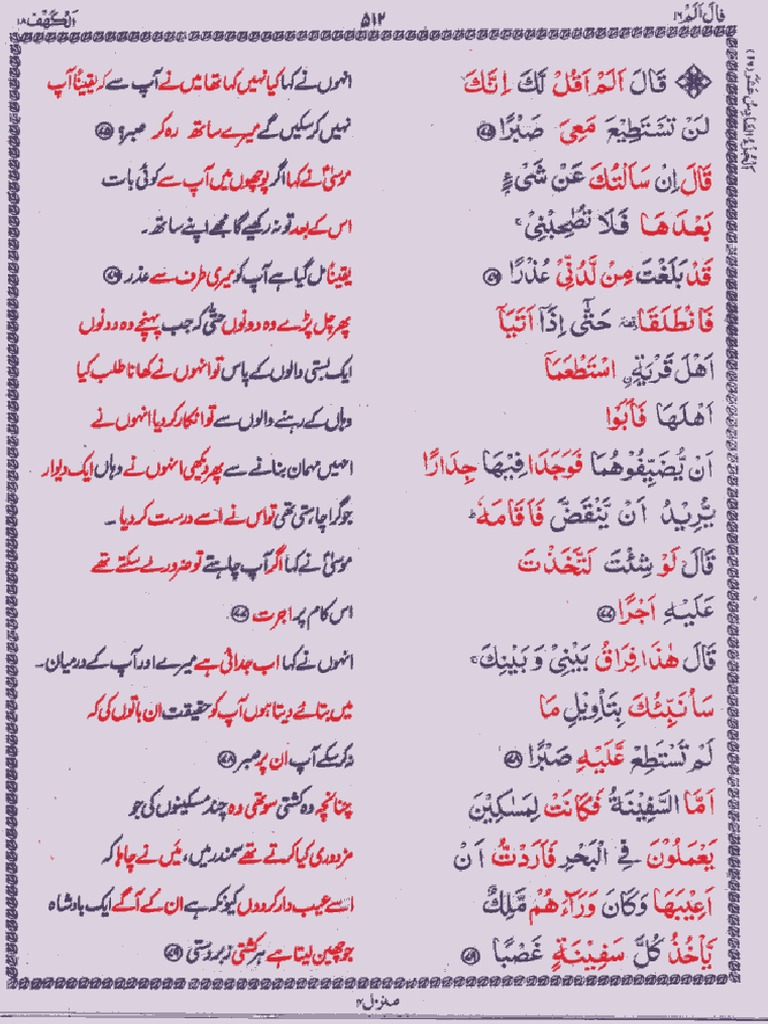 قَالَ اَلَمْ ١٦
٥١٢
اَلْكَهْف ١٨
قَالَ اَلَمْ اَقُلْ لَّكَ اِنَّكَ
انہوں نے کہا کیا نہیں کہا تھا میں نے آپ سے کہ یقیناً آپ
لَنْ تَسْتَطِيْعَ مَعِيَ صَبْرًا ﴿٧٥﴾
نہیں کرسکیں گے میرے ساتھ رہ کر صبر؟ ﴿٧٥﴾
قَالَ اِنْ سَاَلْتُكَ عَنْ شَيْءٍۭ
موسیٰؑ نے کہا اگر پوچھوں میں آپ سے کوئی بات
بَعْدَهَا فَلَا تُصٰحِبْنِيْ ۚ
اس کے بعد تو نہ رکھیے گا مجھے اپنے ساتھ۔
قَدْ بَلَغْتَ مِنْ لَّدُنِّيْ عُذْرًا ﴿٧٦﴾
یقیناً مل گیا ہے آپ کو میری طرف سے عذر ﴿٧٦﴾
فَانْطَلَقَا ۥ حَتّٰۤى اِذَاۤ اَتَيَاۤ
پھر چل پڑے وہ دونوں حتّٰی کہ جب پہنچے وہ دونوں
اَهْلَ قَرْيَةِ ۨ اسْتَطْعَمَاۤ
ایک بستی والوں کے پاس تو انہوں نے کھانا طلب کیا
اَهْلَهَا فَاَبَوْا
وہاں کے رہنے والوں سے تو انکار کردیا انہوں نے
اَنْ يُّضَيِّفُوْهُمَا فَوَجَدَا فِيْهَا جِدَارًا
انہیں مہمان بنانے سے پھر دیکھی انہوں نے وہاں ایک دیوار
يُّرِيْدُ اَنْ يَّنْقَضَّ فَاَقَامَهٗ ؕ
جو گرا چاہتی تھی تو اس نے اسے درست کر دیا۔
قَالَ لَوْ شِئْتَ لَتَّخَذْتَ
موسیٰؑ نے کہا اگر آپ چاہتے تو ضرور لے سکتے تھے
عَلَيْهِ اَجْرًا ﴿٧٧﴾
اس کام پر اجرت ﴿٧٧﴾
قَالَ هٰذَا فِرَاقُ بَيْنِيْ وَ بَيْنِكَ ۚ
انہوں نے کہا اب جدائی ہے میرے اور آپ کے درمیان۔
سَاُنَبِّئُكَ بِتَاْوِيْلِ مَا
میں بتائے دیتا ہوں آپ کو حقیقت ان باتوں کی کہ
لَمْ تَسْتَطِعْ عَّلَيْهِ صَبْرًا ﴿٧٨﴾
نہ کر سکے آپ اُن پر صبر ﴿٧٨﴾
اَمَّا السَّفِيْنَةُ فَكَانَتْ لِمَسٰكِيْنَ
چنانچہ وہ کشتی سو تھی وہ چند مسکینوں کی جو
يَعْمَلُوْنَ فِي الْبَحْرِ فَاَرَدْتُّ اَنْ
مزدوری کیا کرتے تھے سمندر میں، میں نے چاہا کہ
اَعِيْبَهَا وَكَانَ وَرَآءَهُمْ مَّلِكٌ
اسے عیب دار کر دوں کیونکہ ہے ان کے آگے ایک بادشاہ
يَّاْخُذُ كُلَّ سَفِيْنَةٍ غَصْبًا ﴿٧٩﴾
جو چھین لیتا ہے ہر کشتی زبردستی ﴿٧٩﴾
اَلْجُزْءُ السَّادِسُ عَشَرَ (١٦)
منزل ٤